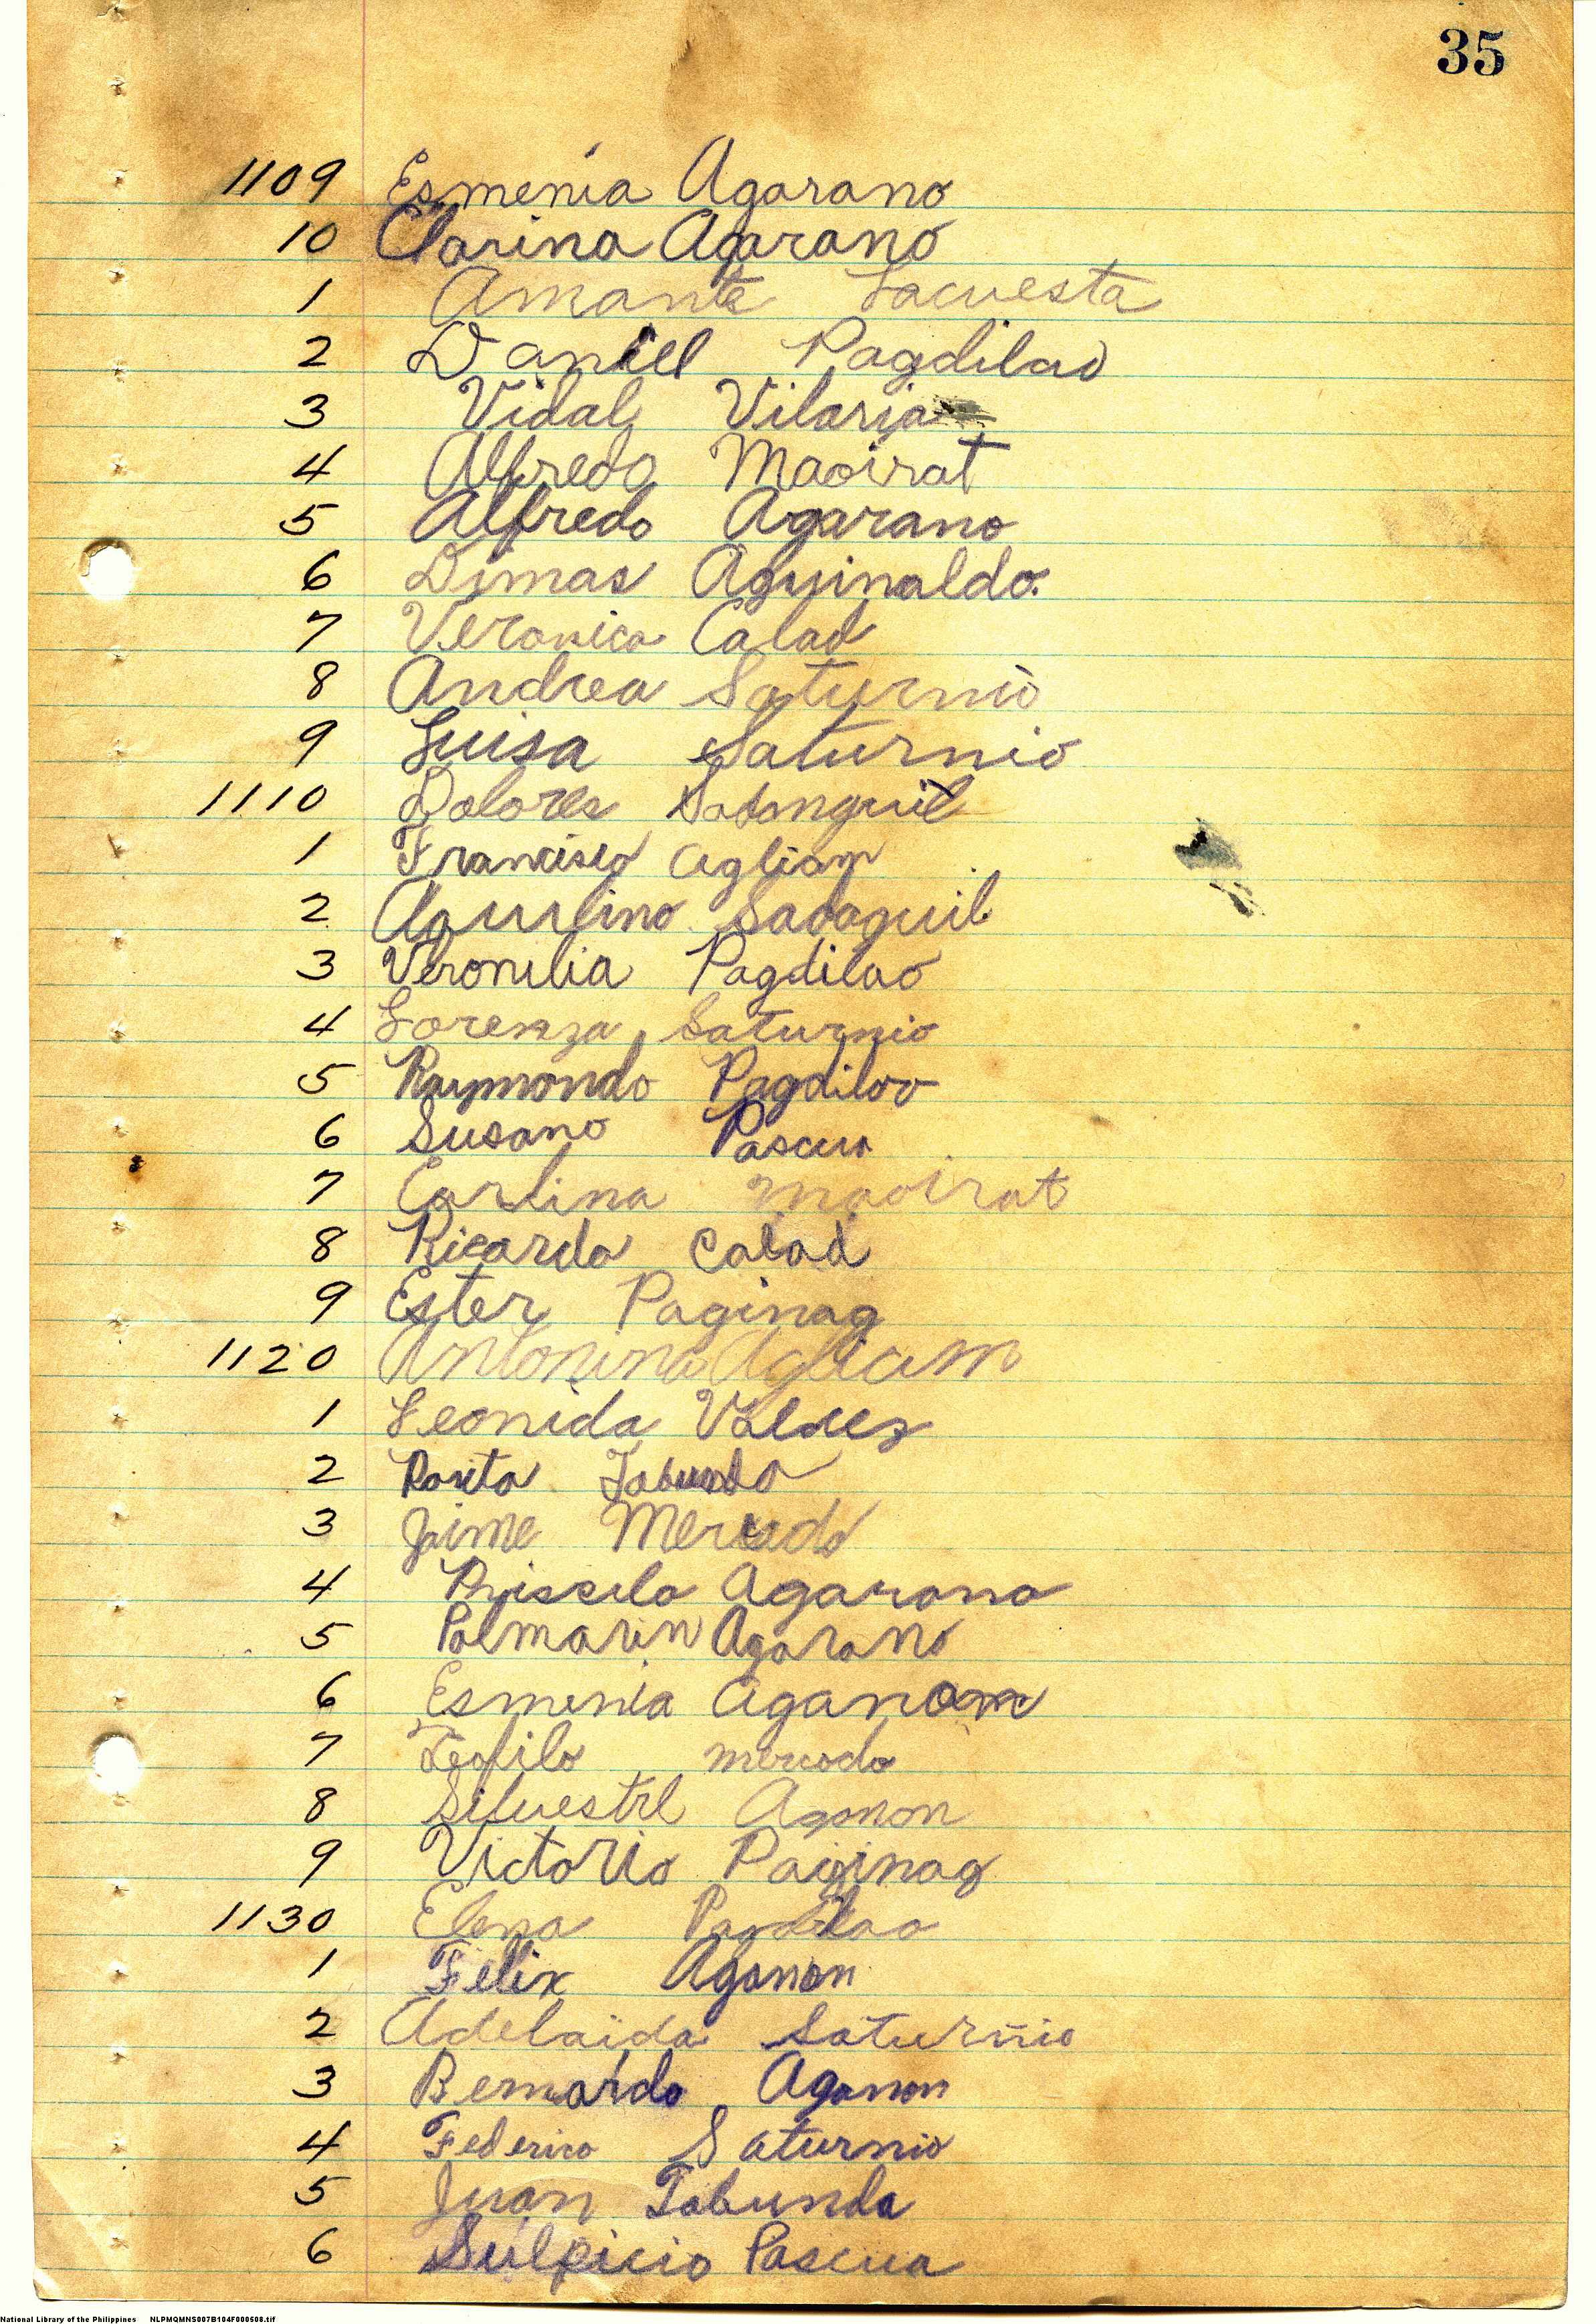 35
1109 Esmenia Agarano
10 Clarina Agarano
1 Amante Lacuesta
2 Daniel Pagdilao
3 Vidal Vilaria
4 Alfredo Maoirat
5 Alfredo Agarano
6 Dimas Aguinaldo.
7 Veronica Calad
8 Andrea Saturnio
9 Luisa Saturnio
1110 Dolores
1 Francisco Agliam
2 Aqurlino Sadaguil
3 Veronilia Pagdilao
4 Lorenza Saturnio
5 Raymondo Pagdilao
6 Susano Pascua
7 Carlina Maoirat
8 Ricardo Calad
9 Ester Paginag
1120 Antonina Agliam
1 Leonida Valdez
2 Rosita Tabunda
3 Jaime Mercado
4 Priscila Agarano
5 Palmarin Agarano
6 Esmenia
7 Teofilo mercado
8 Silvestre Aganon
9 Victorio Paginag
1130 Elena Pagdilao
1 Felix Aganon
2 Adelaida Saturnio
3 Bernardo Aganon
4 Federico Saturnio
5 Juan Tabunda
6 Sulpicio Pascua
National Library of the Philippines NLPMQMNS007B104F000508.tif